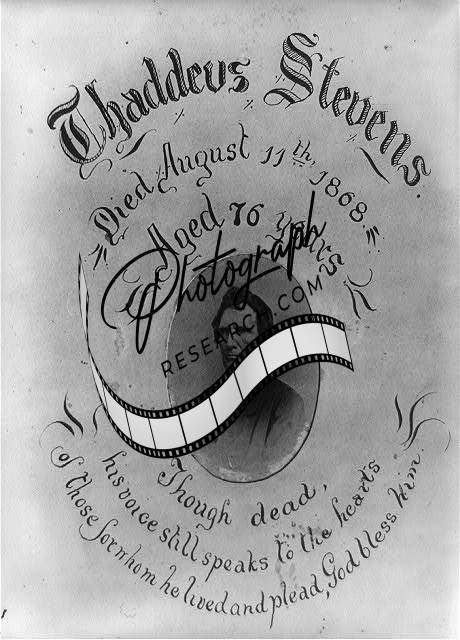 Thaddeus Stevens.
Died August 11th, 1868.
Aged 76 years
Photograph
RESEARCH.COM
Though dead,
his voice still speaks to the hearts
of those for whom he lived and plead, God bless him.